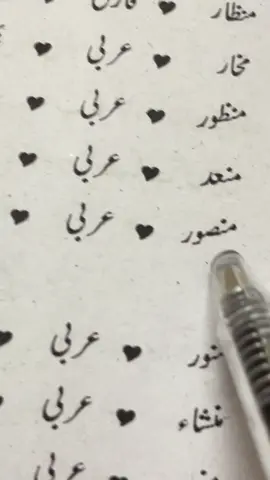 منظار ♥ فارسی ♥
مختار ♥ عربی ♥
منظور ♥ عربی ♥
منعد ♥ عربی ♥
منصور ♥ عربی ♥
منور ♥ عربی ♥
منشاء ♥ عربی ♥
عربی